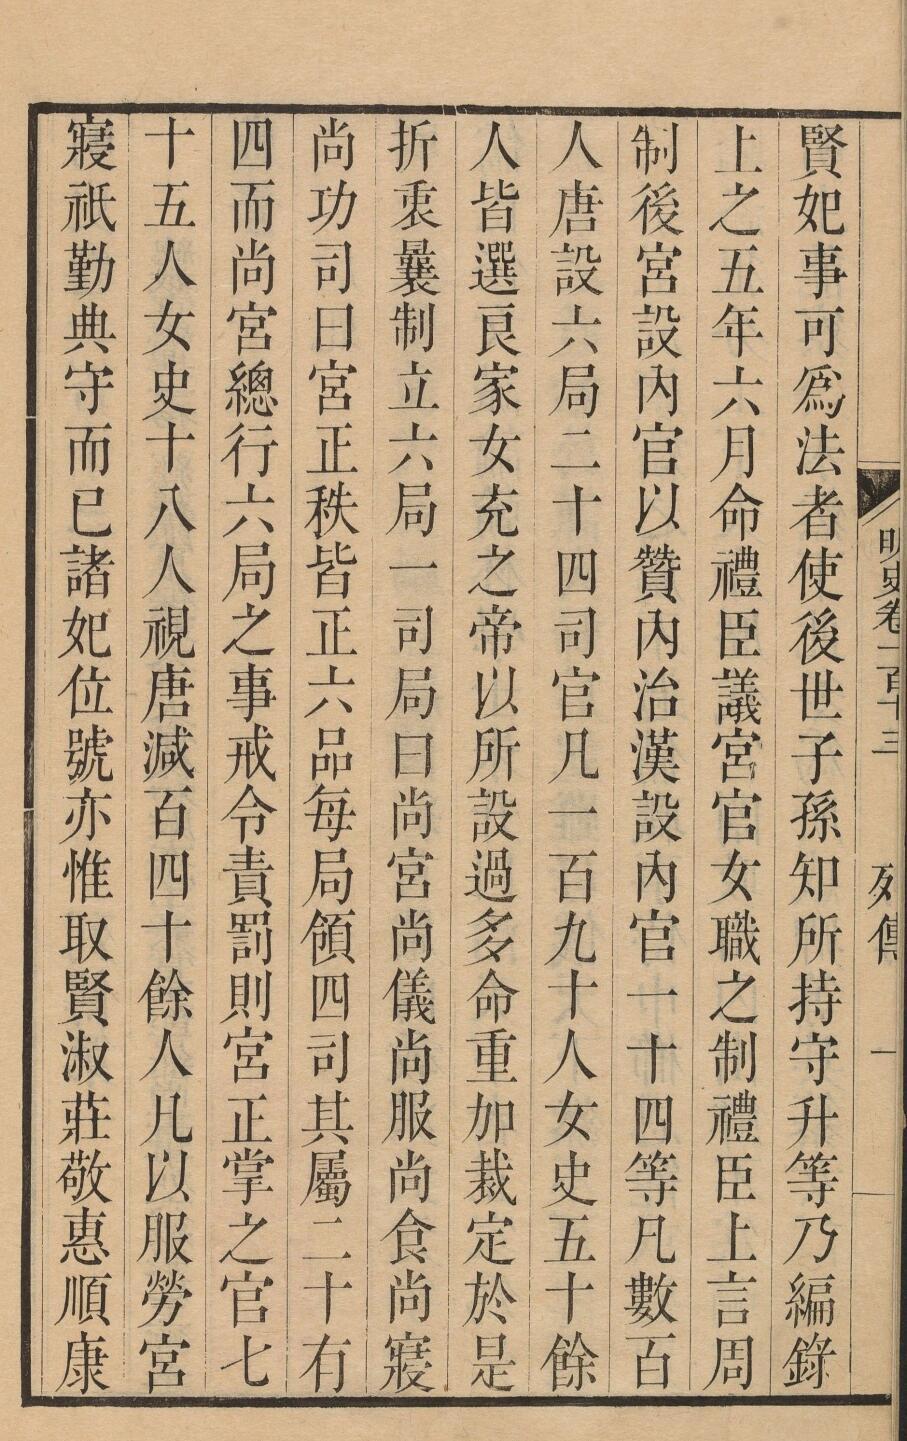 明史卷一百十三　列傳　一
賢妃事可爲法者使後世子孫知所持守升等乃編錄
上之五年六月命禮臣議宮官女職之制禮臣上言周
制後宮設內官以贊內治漢設內官一十四等凡數百
人唐設六局二十四司官凡一百九十人女史五十餘
人皆選良家女充之帝以所設過多命重加裁定於是
折衷曩制立六局一司局曰尚宮尚儀尚服尚食尚寢
尚功司曰宮正秩皆正六品每局領四司其屬二十有
四而尚宮總行六局之事戒令責罰則宮正掌之官七
十五人女史十八人視唐減百四十餘人凡以服勞宮
寢祇勤典守而已諸妃位號亦惟取賢淑莊敬惠順康